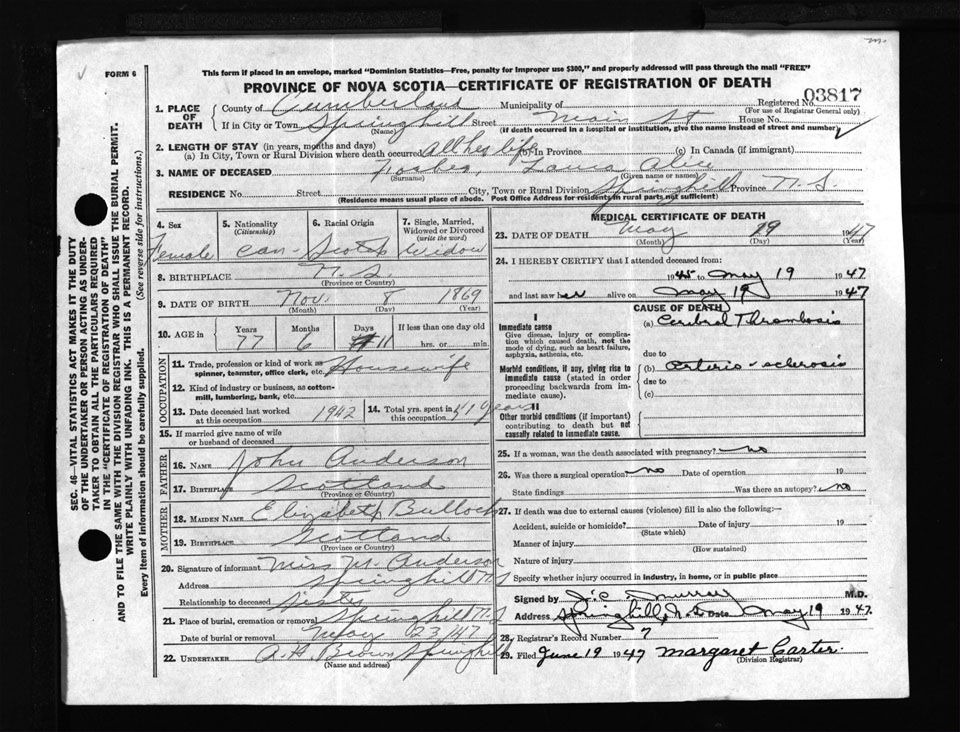 m.
FORM 6
This form if placed in an envelope, marked "Dominion Statistics—Free, penalty for improper use $300," and properly addressed will pass through the mail "FREE"
PROVINCE OF NOVA SCOTIA—CERTIFICATE OF REGISTRATION OF DEATH
Registered No. 03817
(For use of Registrar General only)
1. PLACE OF DEATH
County of Cumberland Municipality of
If in City or Town Springhill Street Main St House No.
(Name) (If death occurred in a hospital or institution, give the name instead of street and number)
2. LENGTH OF STAY (in years, months and days)
(a) In City, Town or Rural Division where death occurred all her life (b) In Province (c) In Canada (if immigrant)
3. NAME OF DECEASED Forbes, Laura Alice
(Surname) (Given name or names)
RESIDENCE No. Street City, Town or Rural Division Springhill Province N.S.
(Residence means usual place of abode. Post Office Address for residents in rural parts not sufficient)
4. Sex 5. Nationality (Citizenship) 6. Racial Origin 7. Single, Married, Widowed or Divorced (write the word)
Female Can- Scotch Widow
8. BIRTHPLACE N.S.
(Province or Country)
9. DATE OF BIRTH Nov. 8 1869
(Month) (Day) (Year)
10. AGE in Years Months Days If less than one day old
77 6 11 hrs. or min.
OCCUPATION
11. Trade, profession or kind of work as spinner, teamster, office clerk, etc. Housewife
12. Kind of industry or business, as cotton-mill, lumbering, bank, etc.
13. Date deceased last worked at this occupation 1942 14. Total yrs. spent in this occupation 41 years
15. If married give name of wife or husband of deceased
FATHER
16. NAME John Anderson
17. BIRTHPLACE Scotland
(Province or Country)
MOTHER
18. MAIDEN NAME Elizabeth Bullock
19. BIRTHPLACE Scotland
(Province or Country)
20. Signature of informant Miss M. Anderson
Address Springhill NS
Relationship to deceased Sister
21. Place of burial, cremation or removal Springhill NS
Date of burial or removal May 23/47
22. UNDERTAKER A.H. Brown Springhill
(Name and address)
MEDICAL CERTIFICATE OF DEATH
23. DATE OF DEATH May 19 1947
(Month) (Day) (Year)
24. I HEREBY CERTIFY that I attended deceased from:
1945 to May 19 1947
and last saw her alive on May 19 1947
CAUSE OF DEATH
I
Immediate cause
Give disease, injury or complication which caused death, not the mode of dying, such as heart failure, asphyxia, asthenia, etc.
(a) Cerebral Thrombosis
due to
Morbid conditions, if any, giving rise to immediate cause (stated in order proceeding backwards from immediate cause).
(b) Arterio-sclerosis
due to
(c)
II
Other morbid conditions (if important) contributing to death but not causally related to immediate cause.
25. If a woman, was the death associated with pregnancy? no
26. Was there a surgical operation? no Date of operation 19
State findings Was there an autopsy? no
27. If death was due to external causes (violence) fill in also the following:—
Accident, suicide or homicide? Date of injury 19
(State which)
Manner of injury
(How sustained)
Nature of injury
Specify whether injury occurred in industry, in home, or in public place
Signed by J.C. Murray M.D.
Address Springhill, N.S. Date May 19 1947.
28. Registrar's Record Number 7
29. Filed June 19 1947 Margaret Carter.
(Division Registrar)
SEC. 46—VITAL STATISTICS ACT MAKES IT THE DUTY
OF THE UNDERTAKER OR PERSON ACTING AS UNDERTAKER TO OBTAIN ALL THE PARTICULARS REQUIRED
IN THE "CERTIFICATE OF REGISTRATION OF DEATH"
AND TO FILE THE SAME WITH THE DIVISION REGISTRAR WHO SHALL ISSUE THE BURIAL PERMIT.
WRITE PLAINLY WITH UNFADING INK. THIS IS A PERMANENT RECORD.
Every item of information should be carefully supplied. (See reverse side for instructions.)